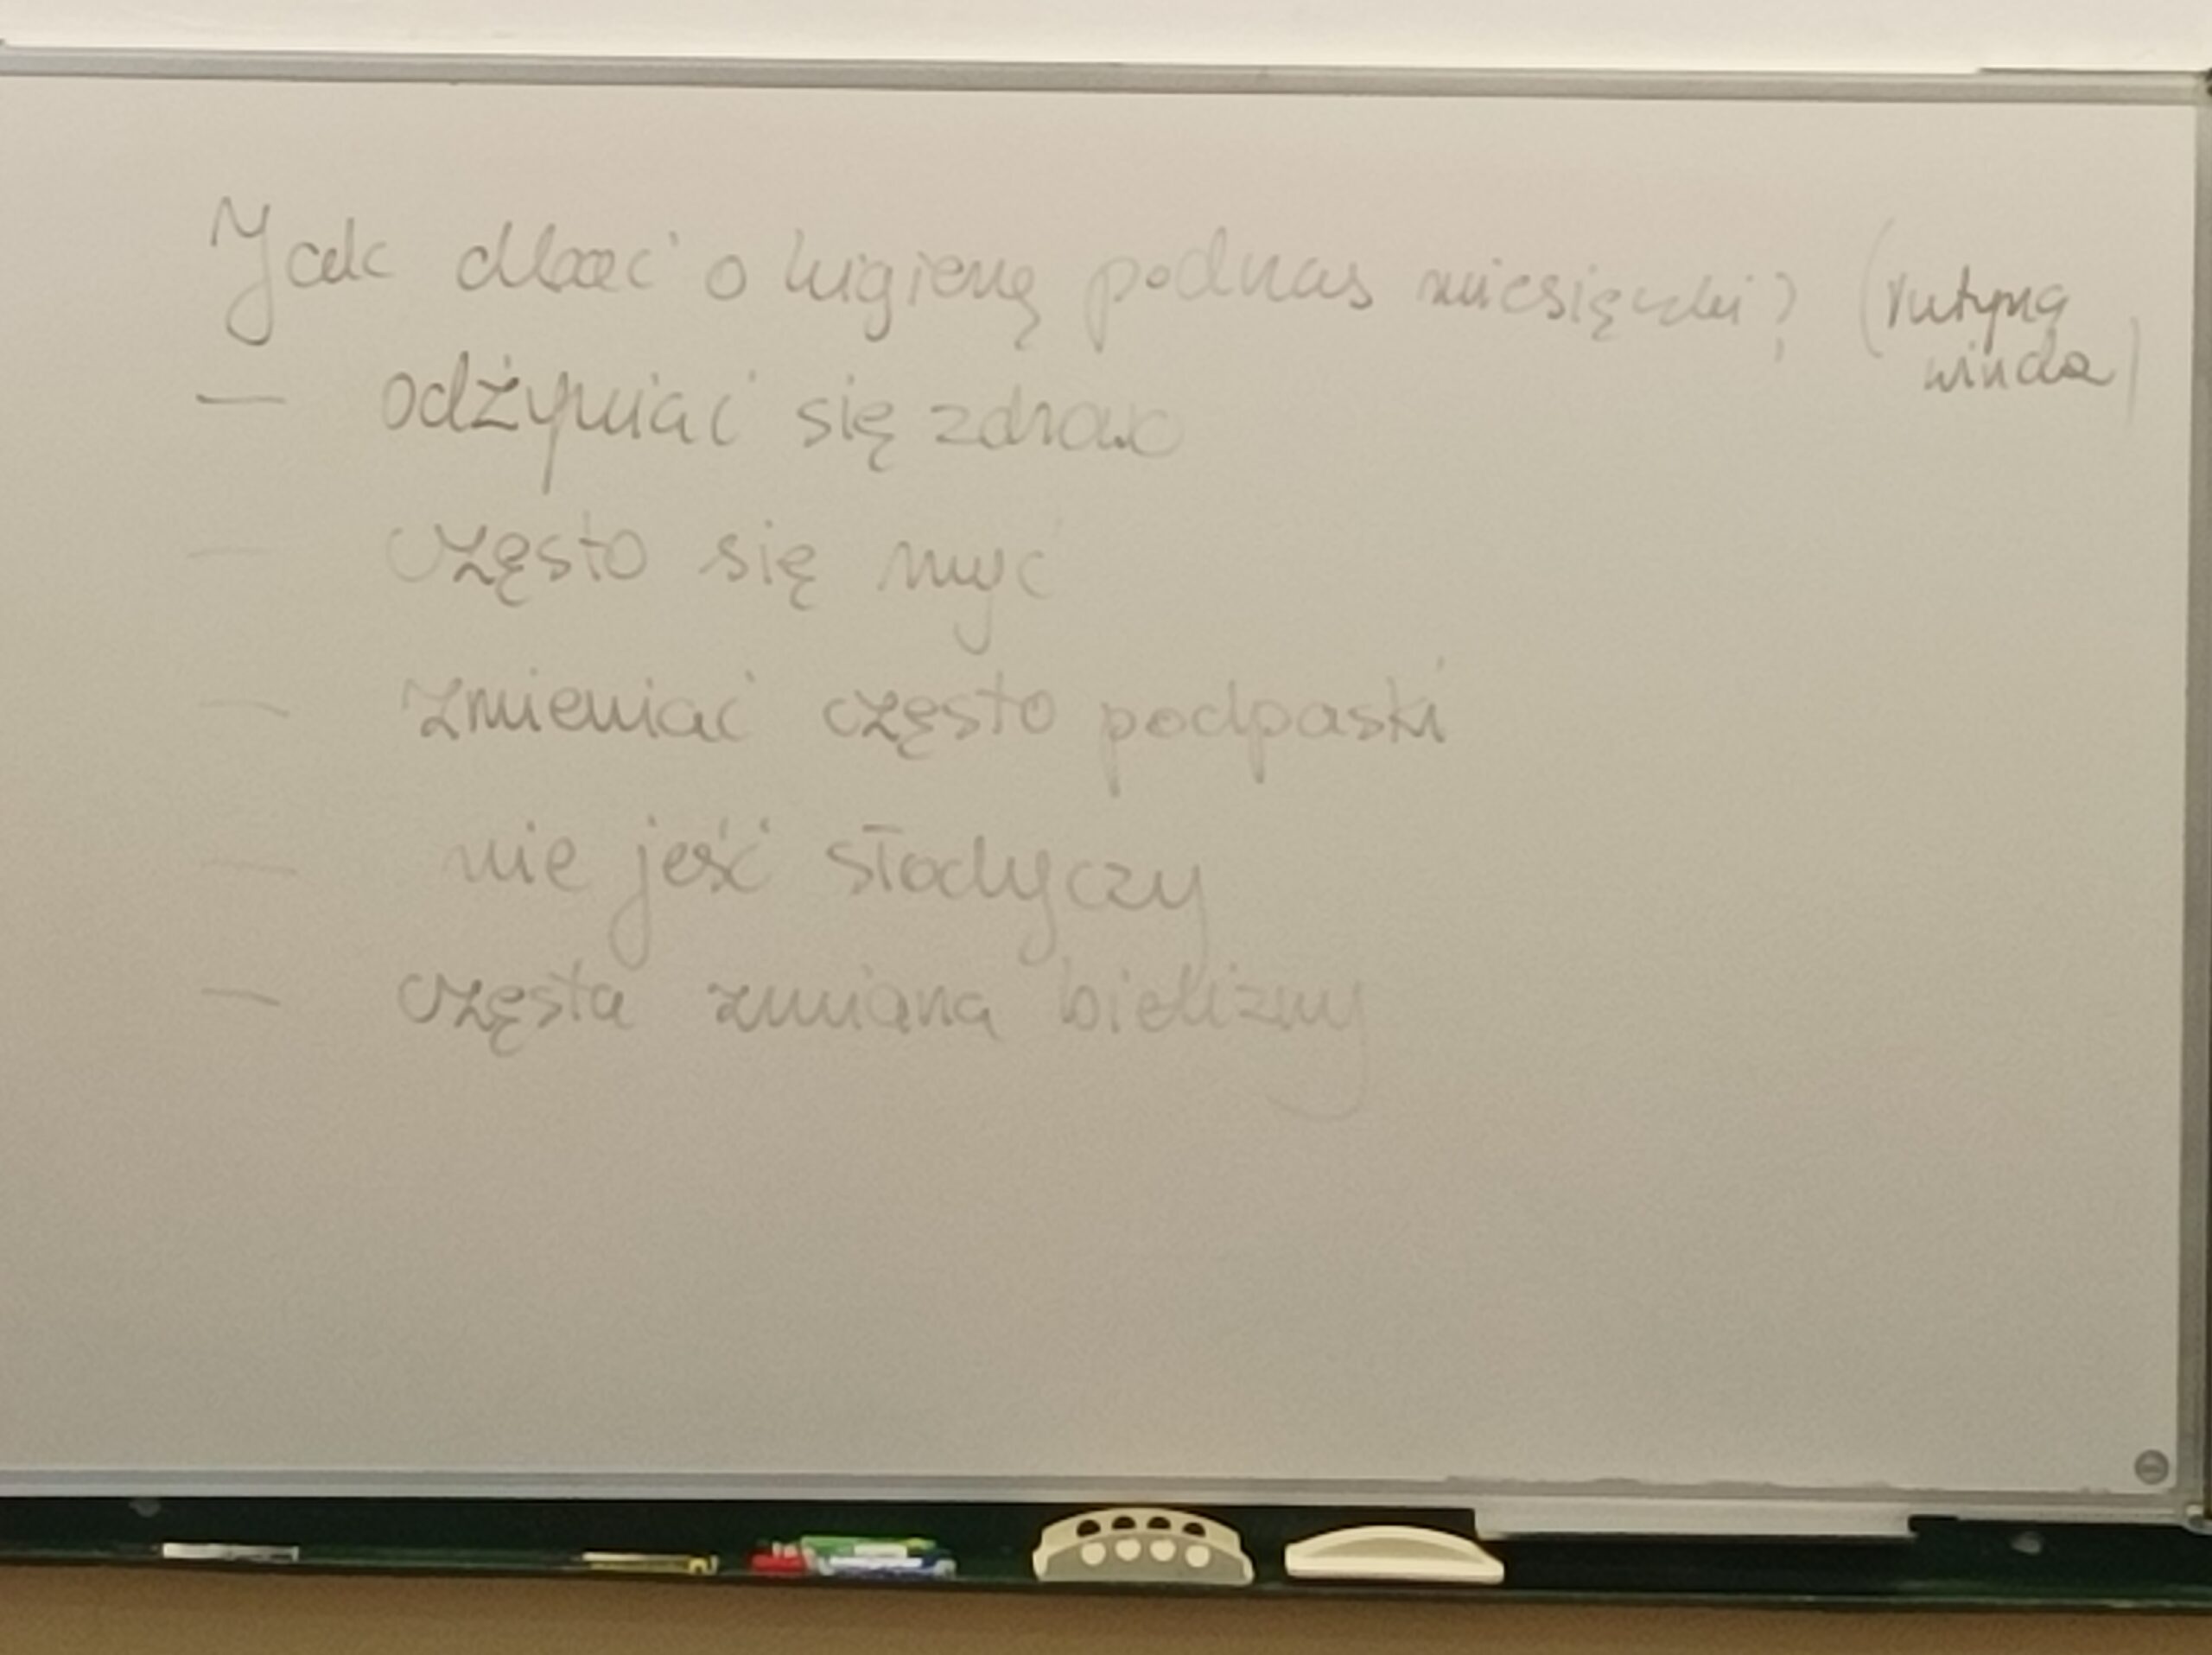 Jak dbać o higienę podczas miesiączki? (rutyna
odżywiać się zdrowo
często się myć
zmieniać często podpaski
nie jeść słodyczy
częsta zmiana bielizny